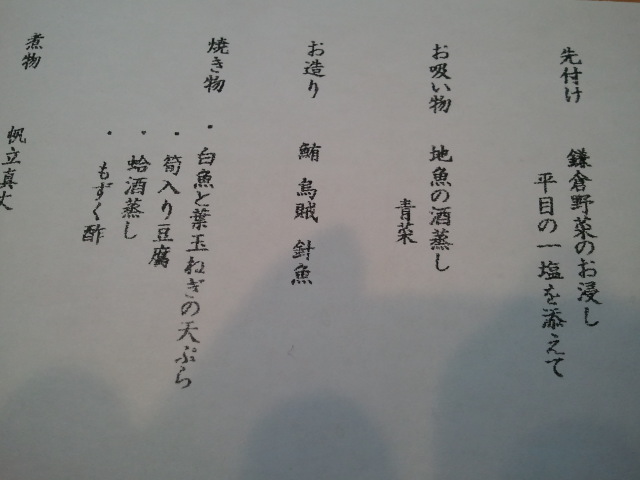 先付け
鎌倉野菜のお浸し
平目の一塩を添えて
お吸い物
地魚の酒蒸し
青菜
お造り
鮪 烏賊 針魚
焼き物
・白魚と葉玉ねぎの天ぷら
・筍入り豆腐
・蛤酒蒸し
・もずく酢
煮物
帆立真丈